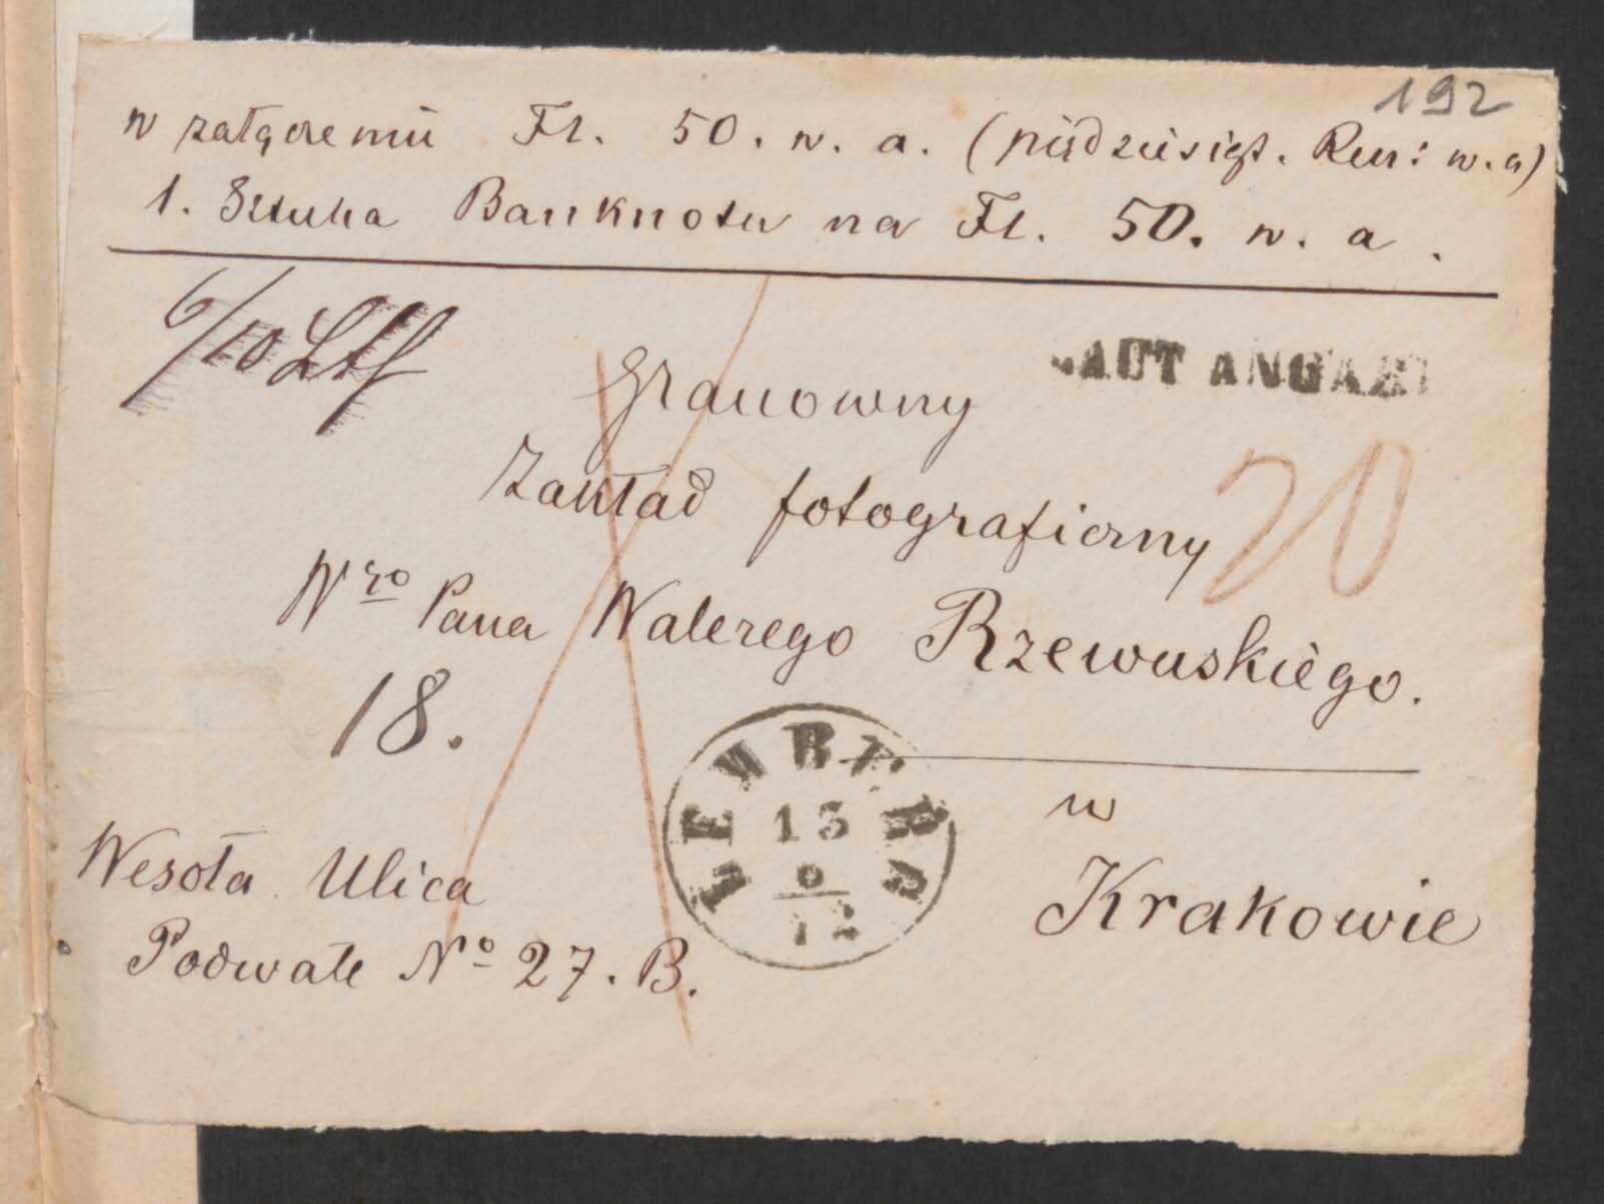 192
w załączeniu Fl. 50. w. a. (piędziesiąt. Ren: w. a)
1. Sztuka Banknotu na Fl. 50. w. a.
6/10
LAUT ANGABE
Szanowny
Zakład fotograficzny
20
Nro Pana Walerego Rzewuskiégo.
18.
LEMBERG
13
9
72
w
Krakowie
Wesoła Ulica
Podwale No 27. B.